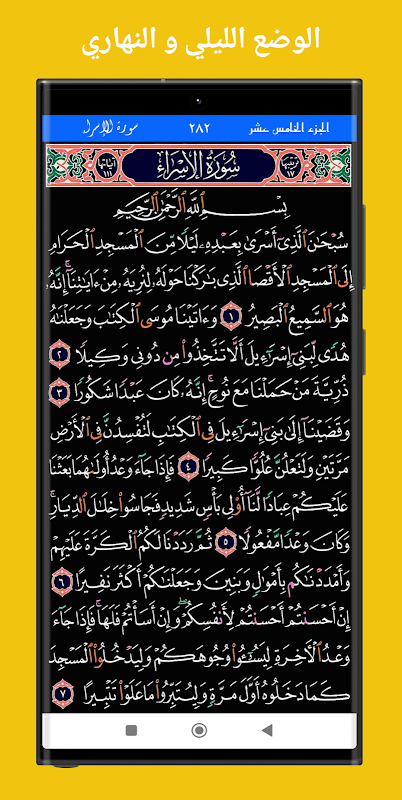 الوضع الليلي و النهاري
الجزء الخامس عشر
٢٨٢
سورة الإسراء
ترتيبها ١٧
سُورَةُ الإِسْرَاءِ
آياتها ١١١
بِسْمِ اللَّهِ الرَّحْمَٰنِ الرَّحِيمِ
سُبْحَٰنَ ٱلَّذِىٓ أَسْرَىٰ بِعَبْدِهِۦ لَيْلًا مِّنَ ٱلْمَسْجِدِ ٱلْحَرَامِ
إِلَى ٱلْمَسْجِدِ ٱلْأَقْصَا ٱلَّذِى بَٰرَكْنَا حَوْلَهُۥ لِنُرِيَهُۥ مِنْ ءَايَٰتِنَآ إِنَّهُۥ
هُوَ ٱلسَّمِيعُ ٱلْبَصِيرُ ١ وَءَاتَيْنَا مُوسَى ٱلْكِتَٰبَ وَجَعَلْنَٰهُ
هُدًى لِّبَنِىٓ إِسْرَٰٓءِيلَ أَلَّا تَتَّخِذُوا۟ مِن دُونِى وَكِيلًا ٢
ذُرِّيَّةَ مَنْ حَمَلْنَا مَعَ نُوحٍ إِنَّهُۥ كَانَ عَبْدًا شَكُورًا ٣
وَقَضَيْنَآ إِلَىٰ بَنِىٓ إِسْرَٰٓءِيلَ فِى ٱلْكِتَٰبِ لَتُفْسِدُنَّ فِى ٱلْأَرْضِ
مَرَّتَيْنِ وَلَتَعْلُنَّ عُلُوًّا كَبِيرًا ٤ فَإِذَا جَآءَ وَعْدُ أُولَىٰهُمَا بَعَثْنَا
عَلَيْكُمْ عِبَادًا لَّنَآ أُو۟لِى بَأْسٍ شَدِيدٍ فَجَاسُوا۟ خِلَٰلَ ٱلدِّيَارِ
وَكَانَ وَعْدًا مَّفْعُولًا ٥ ثُمَّ رَدَدْنَا لَكُمُ ٱلْكَرَّةَ عَلَيْهِمْ
وَأَمْدَدْنَٰكُم بِأَمْوَٰلٍ وَبَنِينَ وَجَعَلْنَٰكُمْ أَكْثَرَ نَفِيرًا ٦
إِنْ أَحْسَنتُمْ أَحْسَنتُمْ لِأَنفُسِكُمْ وَإِنْ أَسَأْتُمْ فَلَهَا فَإِذَا جَآءَ
وَعْدُ ٱلْءَاخِرَةِ لِيَسُۥٓـُٔوا۟ وُجُوهَكُمْ وَلِيَدْخُلُوا۟ ٱلْمَسْجِدَ
كَمَا دَخَلُوهُ أَوَّلَ مَرَّةٍ وَلِيُتَبِّرُوا۟ مَا عَلَوْا۟ تَتْبِيرًا ٧